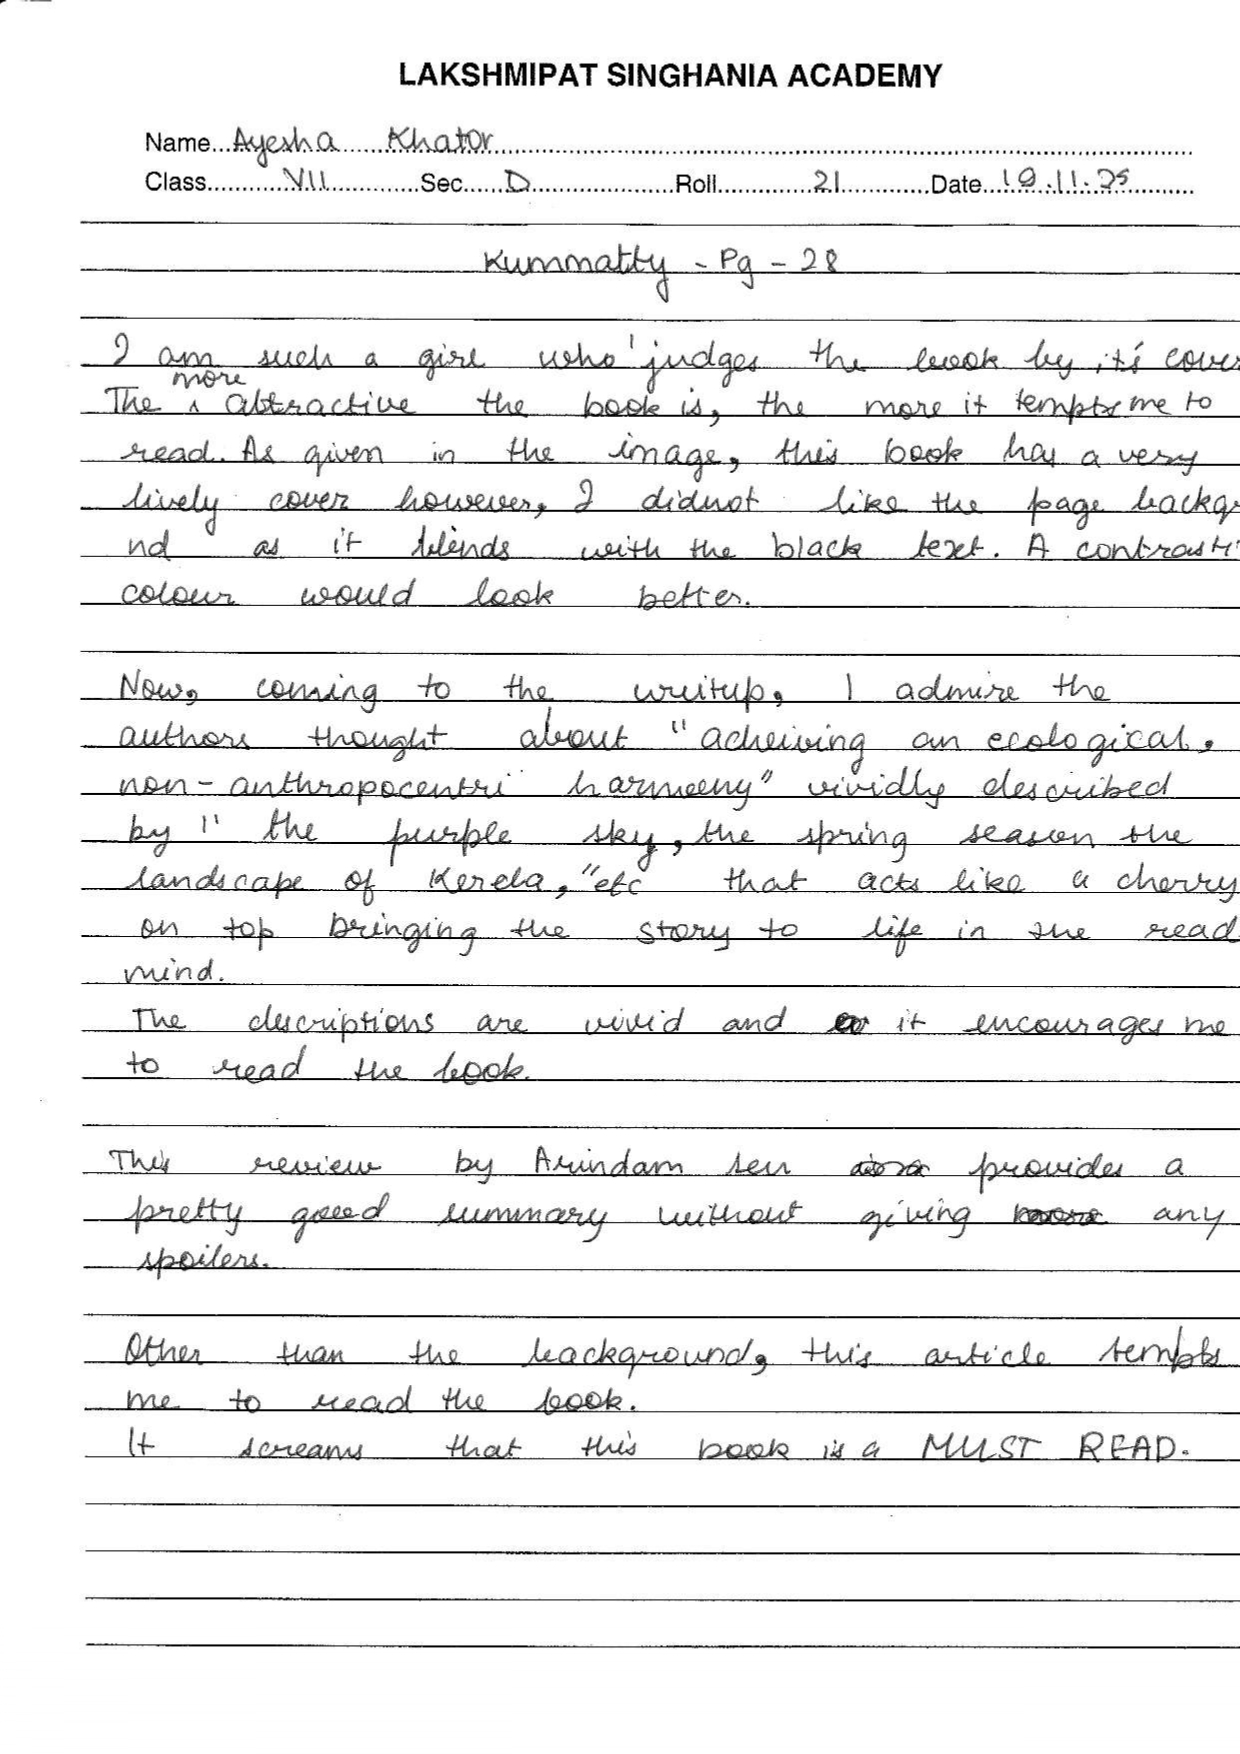 LAKSHMIPAT SINGHANIA ACADEMY
Name...Ayesha Khator
Class...VII...Sec...D...Roll...21...Date...19.11.25
Kummatty - Pg - 28
I am such a girl who judges the book by it's cover
more
The ^ attractive the book is, the more it tempts me to
read. As given in the image, this book has a very
lively cover however, I didnot like the page backgr
nd as it blends with the black text. A contrasti
colour would look better.
Now, coming to the writup, I admire the
authors thought about "acheiving an ecological,
non-anthropocentri harmony" vividly described
by " the purple sky, the spring season the
landscape of Kerela," etc that acts like a cherry
on top bringing the story to life in the read
mind.
The descriptions are vivid and it encourages me
to read the book.
This review by Arindam Sen provides a
pretty good summary without giving any
spoilers.
Other than the background, this article tempts
me to read the book.
It screams that this book is a MUST READ.